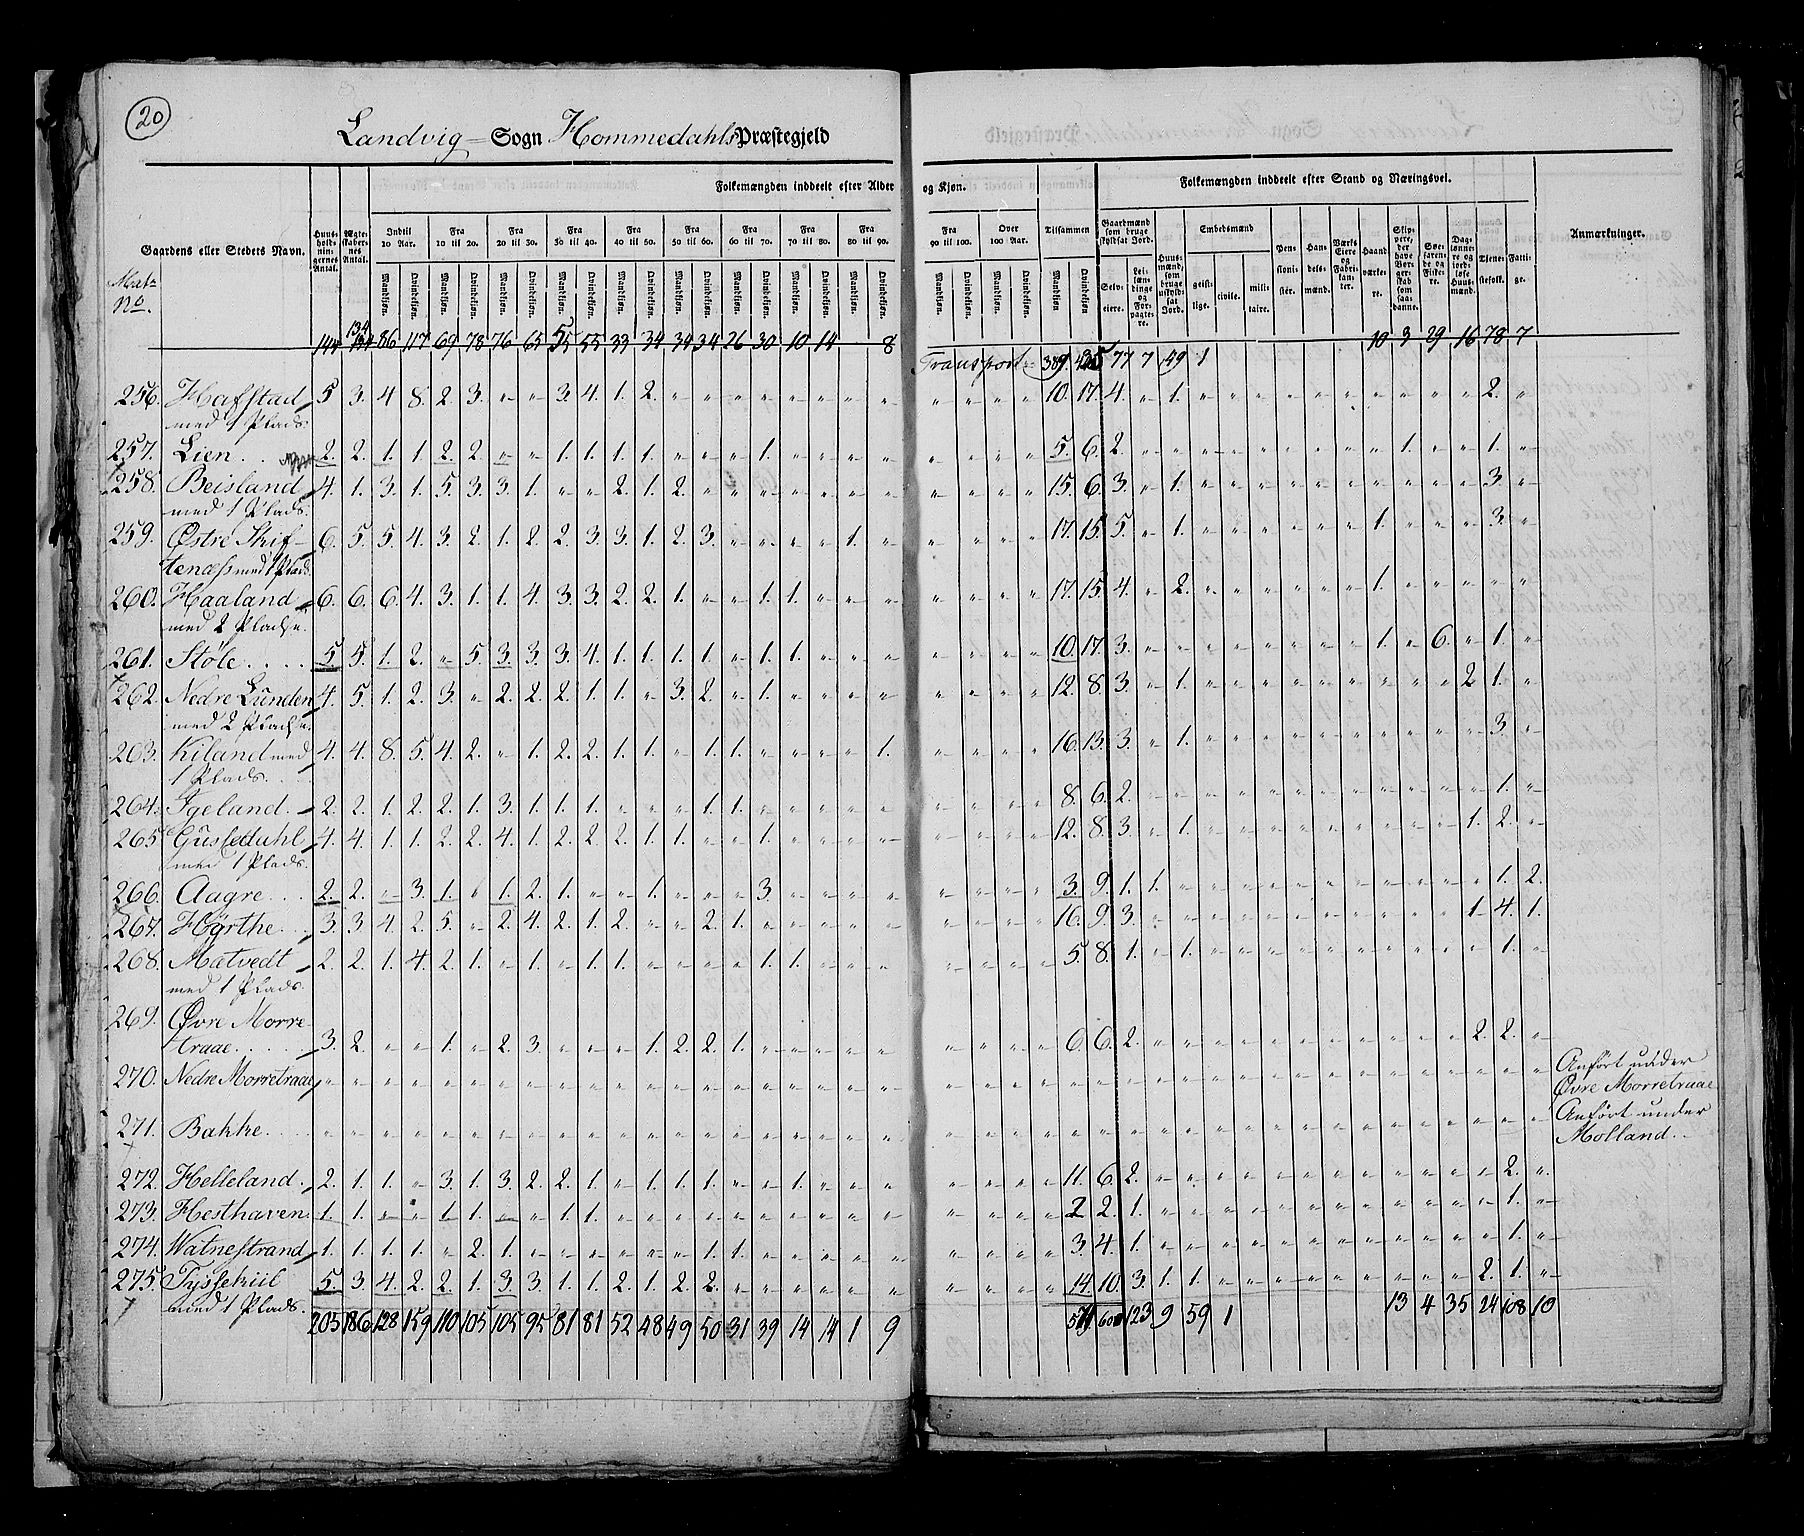 20
Landvig Sogn Hommedahls Præstegjeld
Folkemængden inddeelt efter Alder og Kjøn. Folkemængden inddeelt efter Stand og Næringsvei.
Gaardens eller Stedets Navn. Huusholdningernes Antal. Ægteskabernes Antal. Indtil 10 Aar. Fra 10 til 20. Fra 20 til 30. Fra 30 til 40. Fra 40 til 50. Fra 50 til 60. Fra 60 til 70. Fra 70 til 80. Fra 80 til 90. Fra 90 til 100. Over 100 Aar. Tilsammen Gaardmænd som bruge skyldsat Jord. Huusmænd, som bruge uskyldsat Jord. Embedsmænd Pensionister. Handelsmænd. Værks Eiere og Fabrikanter. Haandværkere. Skippere, der have Borgerskab som saadanne. Søefarende og Fiskere. Daglønnere og jordløse Huusmænd. Tjenestefolk. Fattige. Anmærkninger.
Mat. No.
Mandkjøn. Qvindekjøn. Selveiere. Leilændinge og Forpagtere. geistlige. civile. militaire.
144 134 86 117 69 78 76 65 55 55 33 34 34 34 26 30 10 14 8 Transport 389 425 77 7 49 1 10 3 29 16 78 7
256. Hafstad 5 3. 4 8. 2. 3. „ „ 3. 4. 1. 2. „ „ „ „ „ „ „ „ „ „ „ „ 10. 17. 4. „ 1. „ „ „ „ „ „ „ „ „ „ 2. „
med 1 Plads.
257. Lien. 2. 2. 1. 1. 2. 2. „ „ 1. 1. 1. 1. „ „ „ 1. „ „ „ „ „ „ „ „ 5. 6. 2. „ „ „ „ „ „ „ „ „ 1. „ „ 1. „
258. Beisland 4. 1. 3. 1. 5. 3. 3. 1. „ „ 2. 1. 2. „ „ „ „ „ „ „ „ „ „ „ 15. 6. 3. „ 1. „ „ „ „ „ „ „ „ „ „ 3. „
med 1 Plads.
259. Østre Skif- 6. 5. 5. 4. 3. 2. 1. 2. 2. 3. 3. 1. 2. 3. „ „ „ „ 1. „ „ „ „ „ 17. 15. 5. „ 1. „ „ „ „ „ „ 1. „ „ „ 3. „
tenæss med 1 Plads.
260. Haaland 6. 6. 6. 4. 3. 1. 1. 4. 3. 3. 2. 2. 1. „ „ 1. 1. „ „ „ „ „ „ „ 17. 15. 4. „ 2. „ „ „ „ „ „ 1. „ „ „ „ „
med 2 Pladse.
261. Støle 5 5. 1. 2. „ 5. 3. 3. 3. 4. 1. 1. 1. 1. „ 1. 1. „ „ „ „ „ „ „ 10. 17. 3. „ „ „ „ „ „ „ „ 1. „ 6. „ 1. „
262. Nedre Lunden 4. 5. 1. 2. 3. „ 2. 2. 2. 1. 1. „ 3. 2. „ 1. „ „ „ „ „ „ „ „ 12. 8. 3. „ 1. „ „ „ „ „ „ „ „ „ 2 1. „
med 2 Pladse.
263. Kiland med 4. 4. 8. 5. 4. 2. „ 1. 2. 2. 1. 1. „ 1. 1. „ „ „ „ 1. „ „ „ „ 16. 13. 3. „ 1. „ „ „ „ „ „ „ „ „ „ 3. „
1 Plads.
264. Igeland. 2. 2. 1. 2. 2. 1. 3. 1. 1. 1. „ „ „ 1. 1. „ „ „ „ „ „ „ „ „ 8. 6. 2. „ „ „ „ „ „ „ „ „ „ „ „ 1. „
265 Gusledahl 4. 4. 1. 1. 2. 2. 4. 1. 2. 2. 2. 1. 1. „ „ 1. „ „ „ „ „ „ „ „ 12. 8. 3. „ 1. „ „ „ „ „ „ „ „ „ 1. 2. „
med 1 Plads.
266. Aagre 2. 2. „ 3. 1. „ 1. 2. 1. „ „ 1. „ „ „ 3. „ „ „ „ „ „ „ „ 3. 9. 1. 1. „ „ „ „ „ „ „ „ „ „ „ 1. 2.
267. Hørthe. 3. 3 4. 2. 5. „ 2. 4. 2. 1. 2. „ „ 2. 1. „ „ „ „ „ „ „ „ „ 16. 9. 3. „ „ „ „ „ „ „ „ „ „ „ 1. 4. 1.
268. Matvedt 2. 2. 1. 4. 2. 1. „ 1. „ 1. 1. „ „ „ „ 1. 1. „ „ „ „ „ „ „ 5. 8. 1. „ 1. „ „ „ „ „ „ „ „ „ „ 1. „
med 1 Plads.
269. Øvre Morre-
traae. 3. 2. „ „ 1. „ 2. 3. „ „ „ 1. 2. 2. 1. „ „ „ „ „ „ „ „ „ 6. 6. 2. „ „ „ „ „ „ „ „ „ „ „ 2. 2. „
270. Nedre Morretraae „ „ „ „ „ „ „ „ „ „ „ „ „ „ „ „ „ „ „ „ „ „ „ „ „ „ „ „ „ „ „ „ „ „ „ „ „ „ „ „ „ Anført under
Øvre Morretraae
271. Bakke. „ „ „ „ „ „ „ „ „ „ „ „ „ „ „ „ „ „ „ „ „ „ „ „ „ „ „ „ „ „ „ „ „ „ „ „ „ „ „ „ „ Anført under
Molland.
272. Helleland. 2. 1. 1. „ 3. 1. 3. 2. 2. 1. „ 1. 1. 1. „ „ 1. „ „ „ „ „ „ „ 11. 6. 2. „ „ „ „ „ „ „ „ „ „ „ „ 2. „
273. Hesthaven. 1. 1. „ „ 1. 1. „ „ 1. 1. „ „ „ „ „ „ „ „ „ „ „ „ „ „ 2 2. 1. „ „ „ „ „ „ „ „ „ „ „ „ 1. „
274. Watnestrand 1. 1. 1. 1. „ 2. 1. „ „ „ „ „ „ 1. 1. „ „ „ „ „ „ „ „ „ 3. 4. 1. „ „ „ „ „ „ „ „ „ „ „ „ 1. „
275. Tyssekiil 5. 3. 4. 2. 2. 1. 3. 3. 1. 1. 2. 1. 2. 2. „ „ „ „ „ „ „ „ „ „ 14. 10. 3. 1. 1. „ „ „ „ „ „ „ „ „ 2. 1. „
med 1 Plads. 205 186 128 159 110 105 105 95 81 81 52 48 49 50 31 39 14 14 1 9 571 600 123 9 59 1 13 4 35 24 108 10